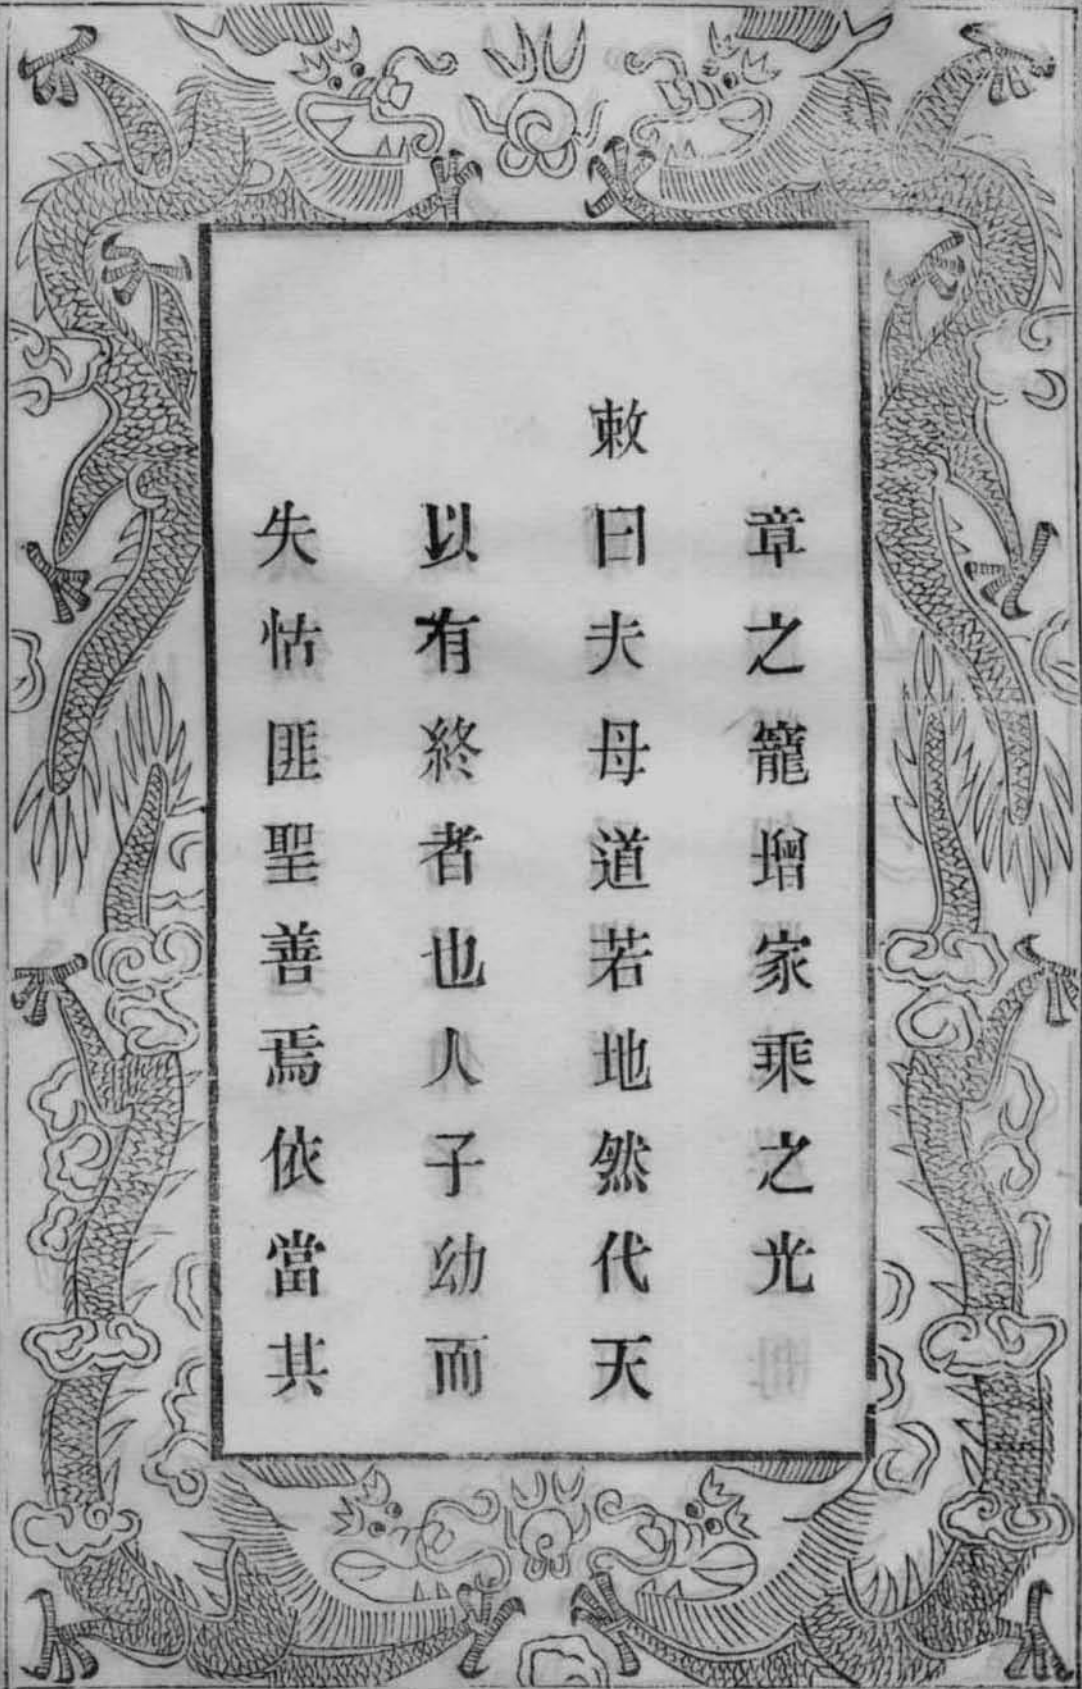 章之寵增家乘之光
敕曰夫母道若地然代天
以有終者也人子幼而
失怙匪聖善焉依當其